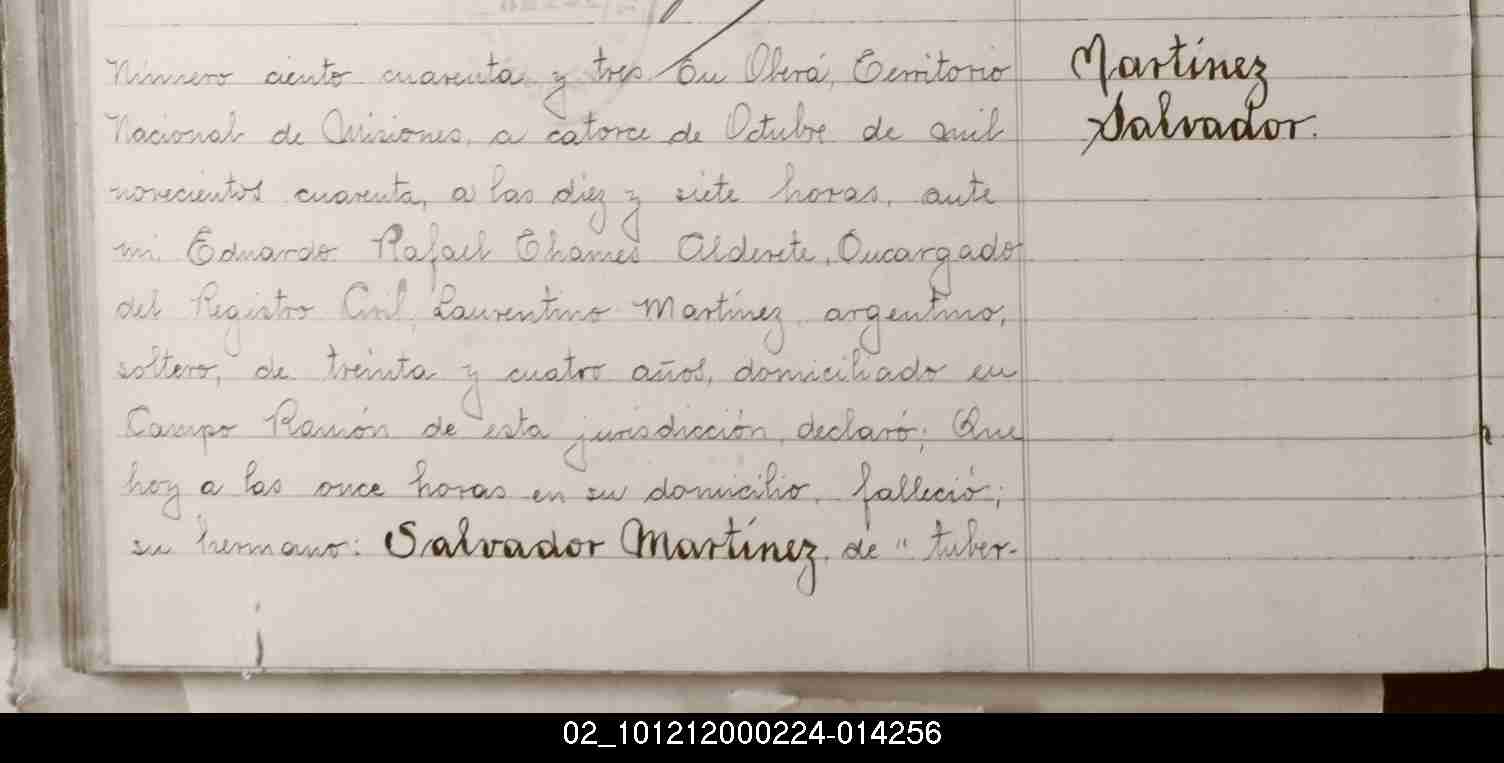 Número ciento cuarenta y tres En Oberá, Territorio
Nacional de Misiones, a catorce de Octubre de mil
novecientos cuarenta, a las diez y siete horas, ante
mi Eduardo Rafael Thames Alderete, Encargado
del Registro Civil, Laurentino Martínez, argentino,
soltero, de treinta y cuatro años, domiciliado en
Campo Ramón de esta jurisdicción, declaró; Que
hoy a las once horas en su domicilio, falleció;
su hermano: Salvador Martínez, de "tuber-
Martínez
Salvador.
02_101212000224-014256